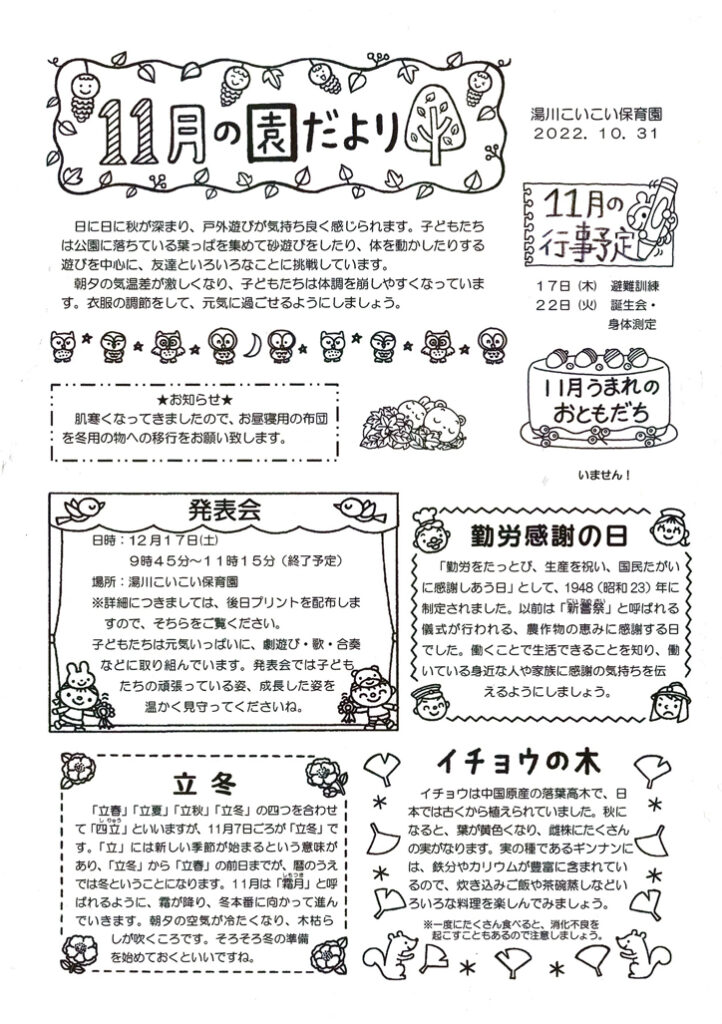 11月の園だより
湯川こいこい保育園
2022.10.31
日に日に秋が深まり、戸外遊びが気持ち良く感じられます。子どもたち
は公園に落ちている葉っぱを集めて砂遊びをしたり、体を動かしたりする
遊びを中心に、友達といろいろなことに挑戦しています。
朝夕の気温差が激しくなり、子どもたちは体調を崩しやすくなっていま
す。衣服の調節をして、元気に過ごせるようにしましょう。
11月の
行事予定
17日（木）避難訓練
22日（火）誕生会・
身体測定
★お知らせ★
肌寒くなってきましたので、お昼寝用の布団
を冬用の物への移行をお願い致します。
11月うまれの
おともだち
いません！
発表会
日時：12月17日(土)
9時45分～11時15分（終了予定）
場所：湯川こいこい保育園
※詳細につきましては、後日プリントを配布しま
すので、そちらをご覧ください。
子どもたちは元気いっぱいに、劇遊び・歌・合奏
などに取り組んでいます。発表会では子ども
たちの頑張っている姿、成長した姿を
温かく見守ってくださいね。
勤労感謝の日
「勤労をたっとび、生産を祝い、国民たがい
に感謝しあう日」として、1948（昭和23）年に
制定されました。以前は「新嘗祭」と呼ばれる
儀式が行われる、農作物の恵みに感謝する日
でした。働くことで生活できることを知り、働
いている身近な人や家族に感謝の気持ちを伝
えるようにしましょう。
立冬
「立春」「立夏」「立秋」「立冬」の四つを合わせ
て「四立」といいますが、11月7日ごろが「立冬」で
す。「立」には新しい季節が始まるという意味が
あり、「立冬」から「立春」の前日までが、暦のうえ
では冬ということになります。11月は「霜月」と呼
ばれるように、霜が降り、冬本番に向かって進ん
でいきます。朝夕の空気が冷たくなり、木枯ら
しが吹くころです。そろそろ冬の準備
を始めておくといいですね。
イチョウの木
イチョウは中国原産の落葉高木で、日
本では古くから植えられていました。秋に
なると、葉が黄色くなり、雌株にたくさん
の実がなります。実の種であるギンナンに
は、鉄分やカリウムが豊富に含まれてい
るので、炊き込みご飯や茶碗蒸しなどい
ろいろな料理を楽しんでみましょう。
※一度にたくさん食べると、消化不良を
起こすこともあるので注意しましょう。